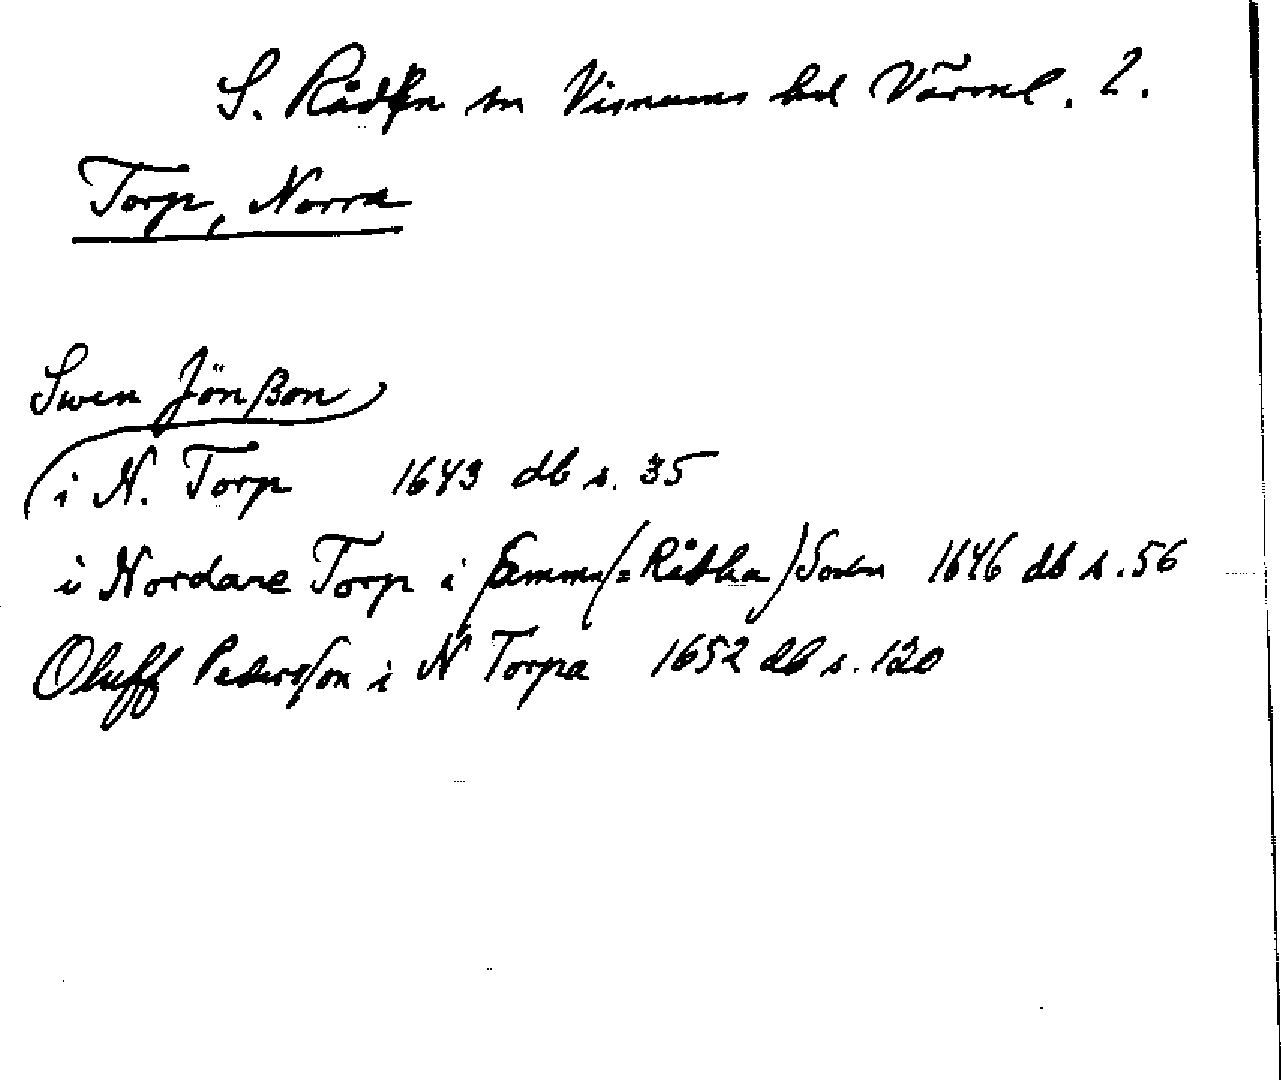 S. Råda sn Visnums hd Värml. l.
Torp, Norra
Swen Jönßon
i N. Torp 1643 db s. 35
i Nordare Torp i samma (= Rådha) Sochn 1646 db s. 56
Oluff Pedersson i N Torpa 1652 db s. 120